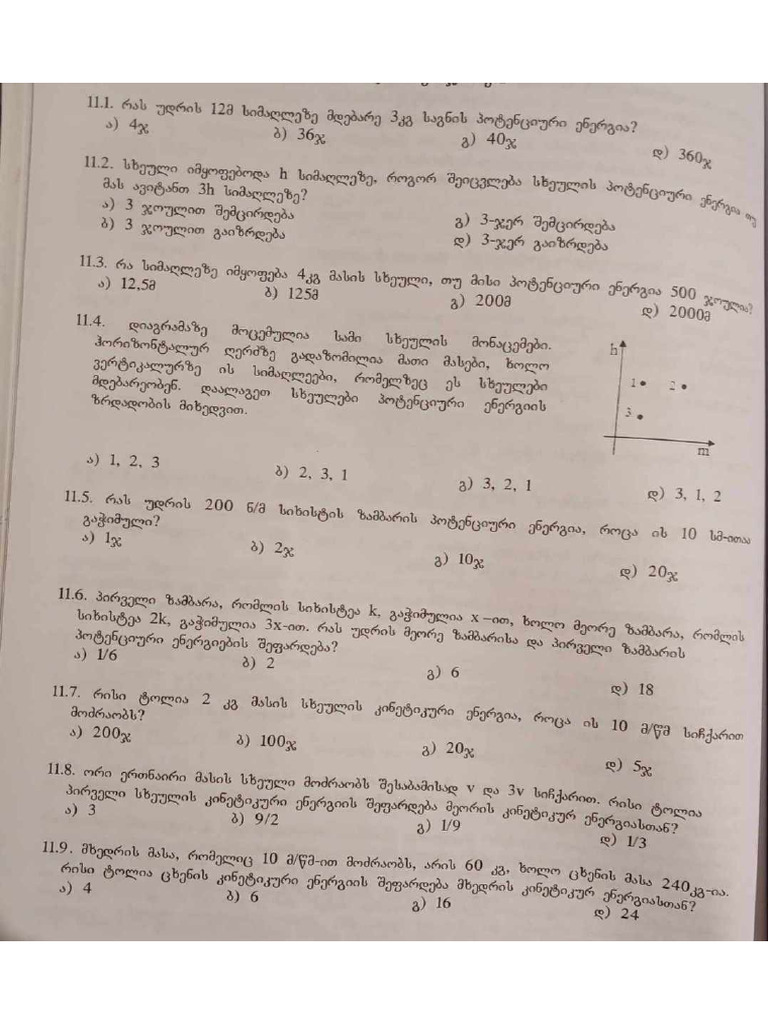 11.1. რას უდრის 12მ სიმაღლეზე მდებარე 3კგ საგნის პოტენციური ენერგია?
ა) 4ჯ ბ) 36ჯ გ) 40ჯ დ) 360ჯ
11.2. სხეული იმყოფებოდა h სიმაღლეზე, როგორ შეიცვლება სხეულის პოტენციური ენერგია თუ
მას ავიტანთ 3h სიმაღლეზე?
ა) 3 ჯოულით შემცირდება გ) 3-ჯერ შემცირდება
ბ) 3 ჯოულით გაიზრდება დ) 3-ჯერ გაიზრდება
11.3. რა სიმაღლეზე იმყოფება 4კგ მასის სხეული, თუ მისი პოტენციური ენერგია 500 ჯოულია?
ა) 12,5მ ბ) 125მ გ) 200მ დ) 2000მ
11.4. დიაგრამაზე მოცემულია სამი სხეულის მონაცემები.
ჰორიზონტალურ ღერძზე გადაზომილია მათი მასები, ხოლო
ვერტიკალურზე ის სიმაღლეები, რომელზეც ეს სხეულები
მდებარეობენ. დაალაგეთ სხეულები პოტენციური ენერგიის
ზრდადობის მიხედვით.
h
1 2
3
m
ა) 1, 2, 3 ბ) 2, 3, 1 გ) 3, 2, 1 დ) 3, 1, 2
11.5. რას უდრის 200 ნ/მ სიხისტის ზამბარის პოტენციური ენერგია, როცა ის 10 სმ-ითაა
გაჭიმული?
ა) 1ჯ ბ) 2ჯ გ) 10ჯ დ) 20ჯ
11.6. პირველი ზამბარა, რომლის სიხისტეა k, გაჭიმულია x –ით, ხოლო მეორე ზამბარა, რომლის
სიხისტეა 2k, გაჭიმულია 3x-ით. რას უდრის მეორე ზამბარისა და პირველი ზამბარის
პოტენციური ენერგიების შეფარდება?
ა) 1/6 ბ) 2 გ) 6 დ) 18
11.7. რისი ტოლია 2 კგ მასის სხეულის კინეტიკური ენერგია, როცა ის 10 მ/წმ სიჩქარით
მოძრაობს?
ა) 200ჯ ბ) 100ჯ გ) 20ჯ დ) 5ჯ
11.8. ორი ერთნაირი მასის სხეული მოძრაობს შესაბამისად v და 3v სიჩქარით. რისი ტოლია
პირველი სხეულის კინეტიკური ენერგიის შეფარდება მეორის კინეტიკურ ენერგიასთან?
ა) 3 ბ) 9/2 გ) 1/9 დ) 1/3
11.9. მხედრის მასა, რომელიც 10 მ/წმ-ით მოძრაობს, არის 60 კგ, ხოლო ცხენის მასა 240კგ-ია.
რისი ტოლია ცხენის კინეტიკური ენერგიის შეფარდება მხედრის კინეტიკურ ენერგიასთან?
ა) 4 ბ) 6 გ) 16 დ) 24